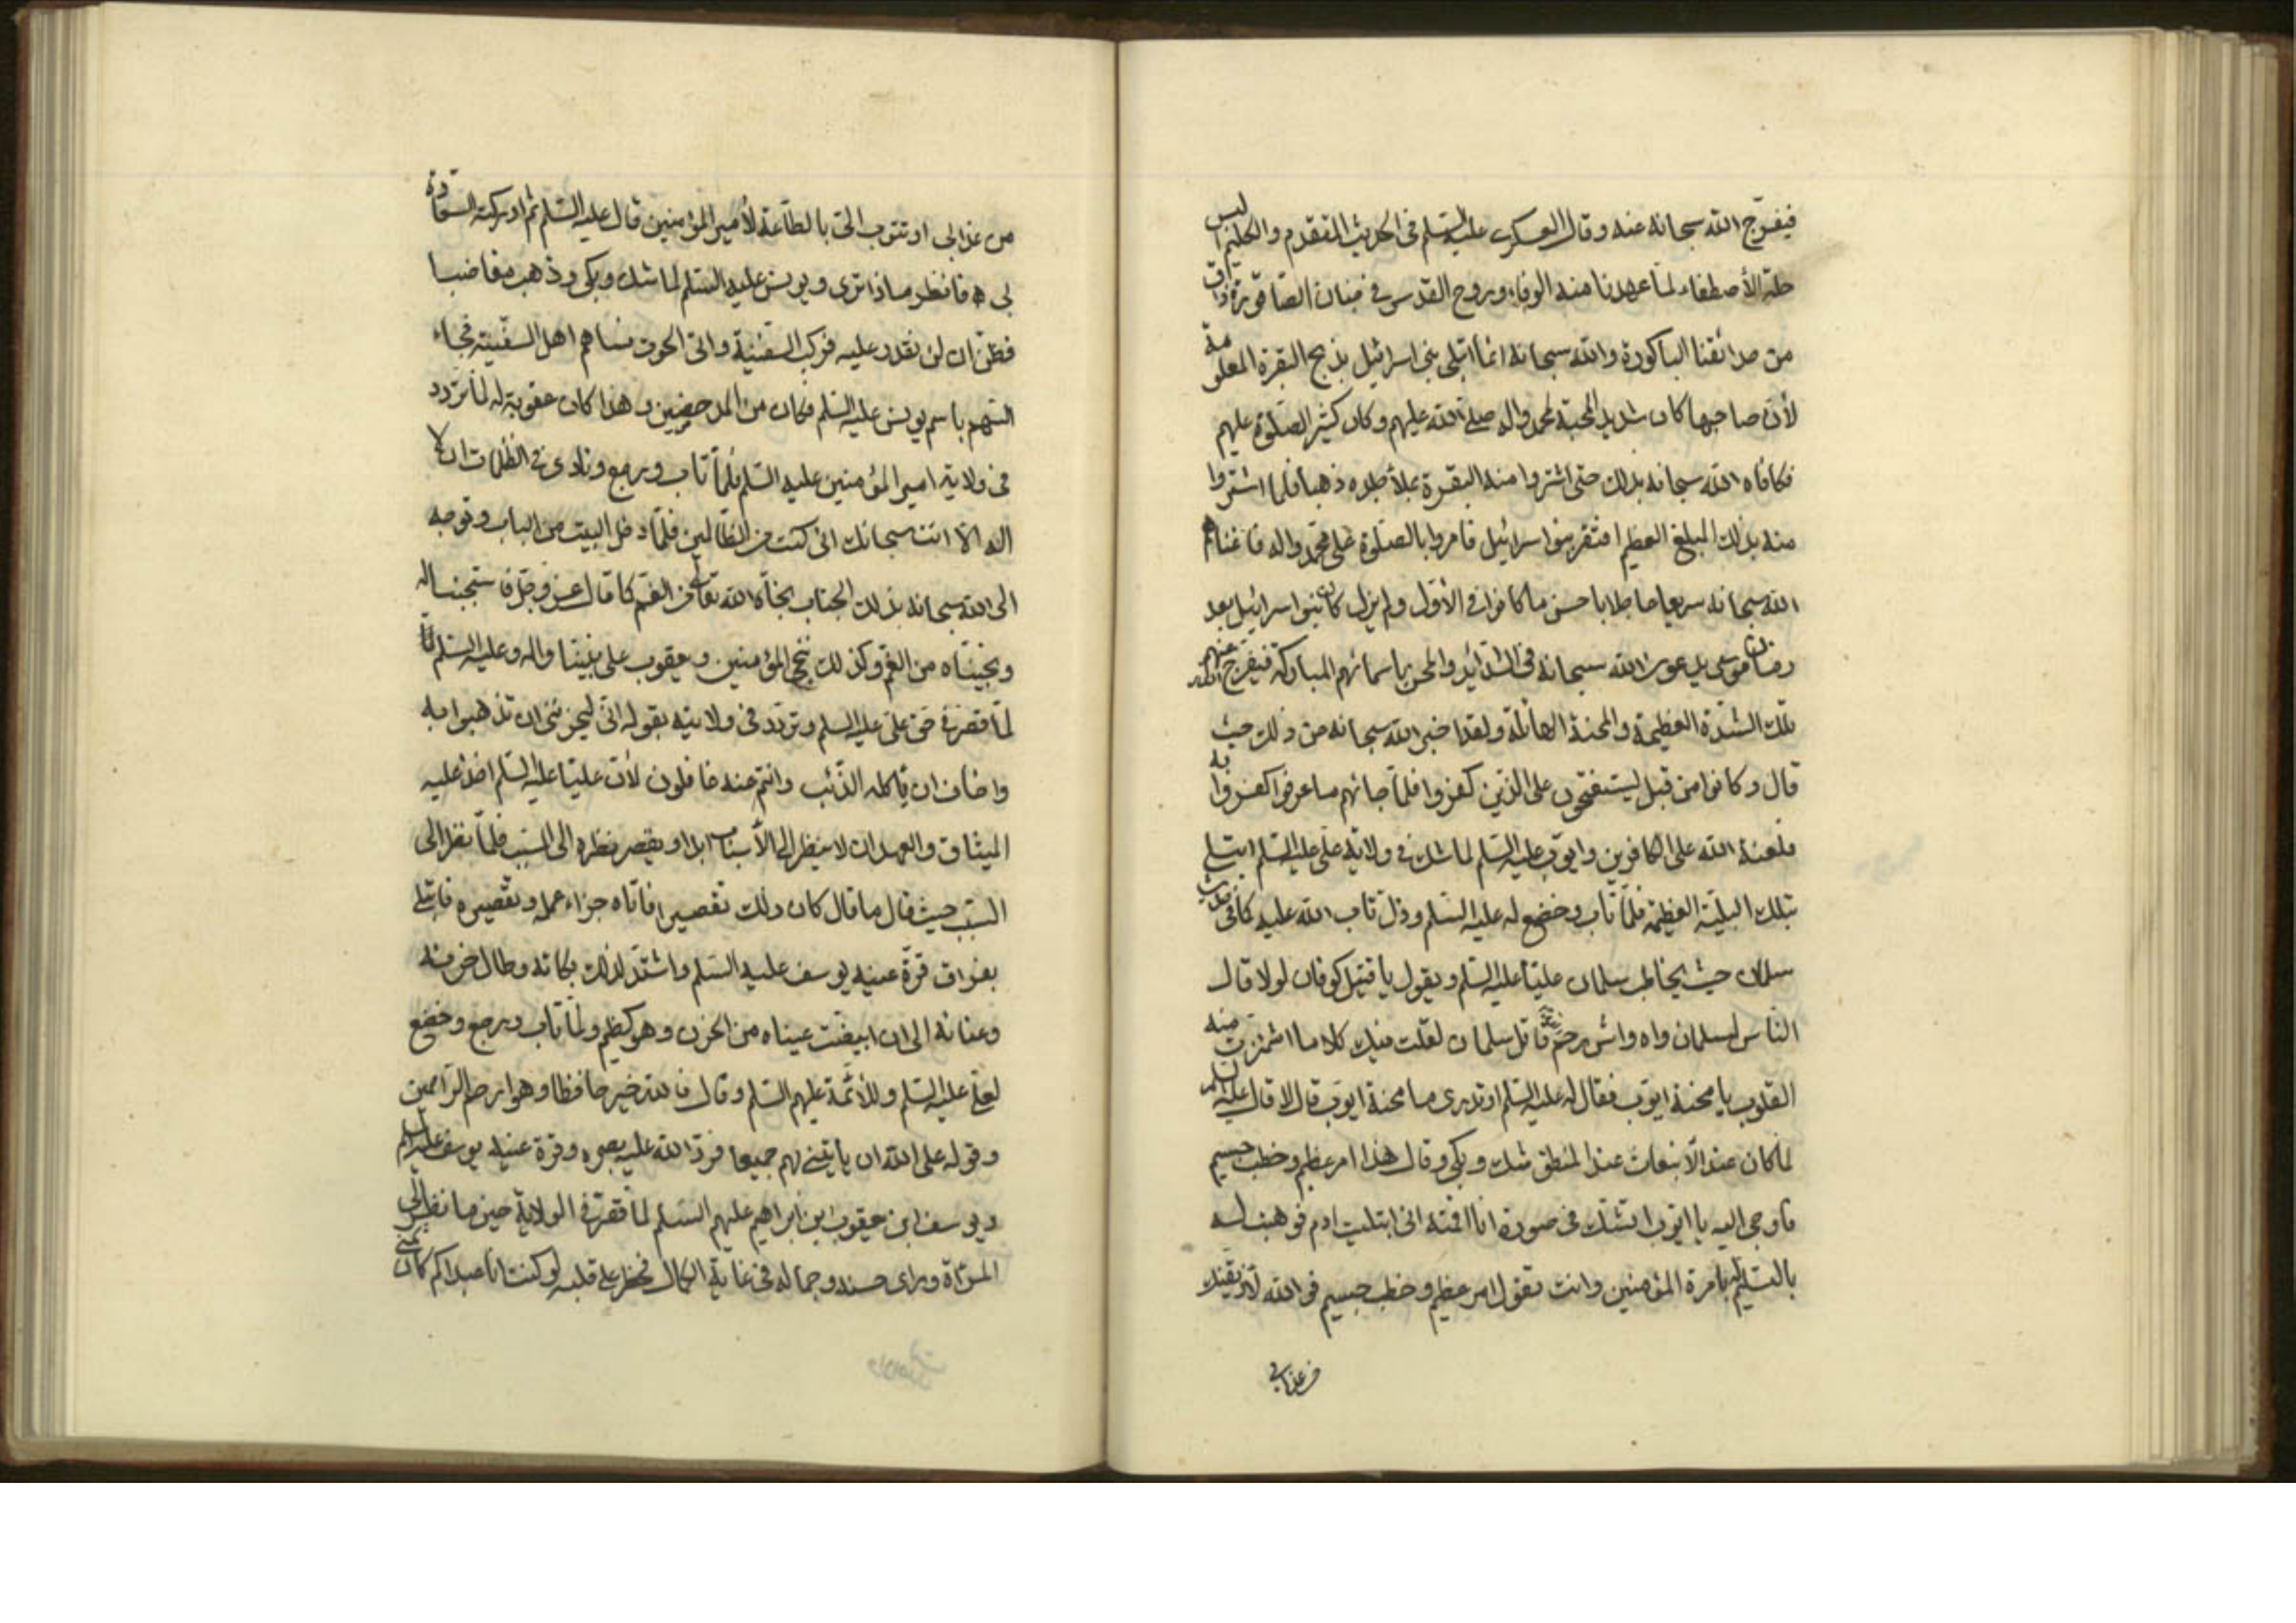 فيفرّج الله سبحانه عنه وقال العسكرى عليه السّلم فى الحديث المتقدم والكليم البس
حلة الأصطفاء لما عهدنا منه الوفاء وروح القدس فى جنان الصاقورة ذاق
من حدائقنا الباكورة والله سبحانه انما ابتلى بنى اسرائيل بذبح البقرة المعلومة
لأن صاحبها كان شديد المحبة لمحمد واله صلى الله عليهم وكان كثير الصلوة عليهم
فكافاه الله سبحانه بذلك حتى اشتروا منه البقرة بملأ جلده ذهبا فلما اشتروا
منه بذلك المبلغ العظيم افتقر بنوا اسرائيل فامروا بالصلوة على محمد واله فاغناهم
الله سبحانه سريعا عاجلا باحسن ما كانوا فى الأول ولم يزل كان بنوا اسرائيل بعد
زمان موسى يدعون الله سبحانه فى الشدائد والمحن باسمائهم المباركة فيفرج عنهم
تلك الشدّة العظيمة والمحنة الهائلة ولقد اخبر الله سبحانه من ذلك حيث
قال وكانوا من قبل يستفتحون على الذين كفروا فلما جائهم ما عرفوا كفروا به
فلعنة الله على الكافرين وايوب عليه السّلم لما شك فى ولاية على عليه السّلم ابتلى
بتلك البلية العظيمة فلمّا تاب وخضع له عليه السّلم وذل تاب الله عليه كما فى حديث
سلمان حيث يخاطب سلمان عليّا عليه السّلم ويقول يا قتيل كوفان لولا قال
الناس لسلمان واه واش رحم الله قاتل سلمان لقلت فيك كلاما اشمئزت منه
القلوب يا محنة ايوب فقال له عليه السّلم اوتدرى ما محنة ايوب قال لا قال عليه السلم
لما كان عند الأنبعاث عند المنطق شك وبكى وقال هذا امر عظيم وخطب جسيم
فاوحى اليه يا ايوب اتشك فى صورة انا اقمته انى ابتليت ادم فوهبته له
بالتسليم له بامرة المؤمنين وانت تقول امر عظيم وخطب جسيم فو الله لأذيقنك
من عذابى
من عذابى او تتوب الىّ بالطّاعة لأمير المؤمنين قال عليه السّلم ثم ادركته السعادة
بى ه فانظر ماذا ترى ويونس عليه السّلم لما شك وبكى وذهب مغاضبا
فظن ان لن نقدر عليه فركب السفينة واتى الحوت فساهم اهل السفينة فجاء
السّهم باسم يونس عليه السّلم فكان من المدحضين وهذا كان عقوبة له لما تردد
فى ولاية امير المؤمنين عليه السّلم فلمّا تاب ورجع ونادى فى الظلمات ان لا
اله الا انت سبحانك انى كنت من الظّالمين فلمّا دخل البيت من الباب وتوجه
الى الله سبحانه بذلك الجناب نجّاه الله تعالى من الغم كما قال عز وجل فاستجبنا له
ونجيناه من الغم وكذلك ننجى المؤمنين ويعقوب على نبينا واله وعليه السّلم
لمّا قصر فى حق على عليه السلم وتردد فى ولايته بقوله انى ليحزننى ان تذهبوا به
واخاف ان ياكله الذّئب وانتم عنه غافلون لأن عليّا عليه السّلم اخذ عليه
الميثاق والعهد ان لا ينظر الى الأسباب ابدا ويقصر نظره الى المسبب فلمّا نظر الى
السبب حيث قال ما قال كان ذلك تقصيرا فاتاه جزاء عمله وتقصيره فابتلى
بفراق قرة عينيه يوسف عليه السّلم واشتد لذلك بكائه وطال حزنه
وعنائه الى ان ابيضت عيناه من الحزن وهو كظيم ولمّا تاب ورجع وخضع
لعلى عليه السّلم وللأئمة عليهم السّلم وقال فالله خير حافظا وهو ارحم الراحمين
وقوله على الله ان يأتينى بهم جميعا فرد الله عليه بصره وقرة عينيه يوسف عليه السلم
ويوسف ابن يعقوب ابن ابراهيم عليهم السّلم لما قصر فى الولاية حين ما نظر الى
المرآة وراى حسنه وجماله فى غاية الكمال فخطر على قلبه لو كنت انا عبدا كم كان